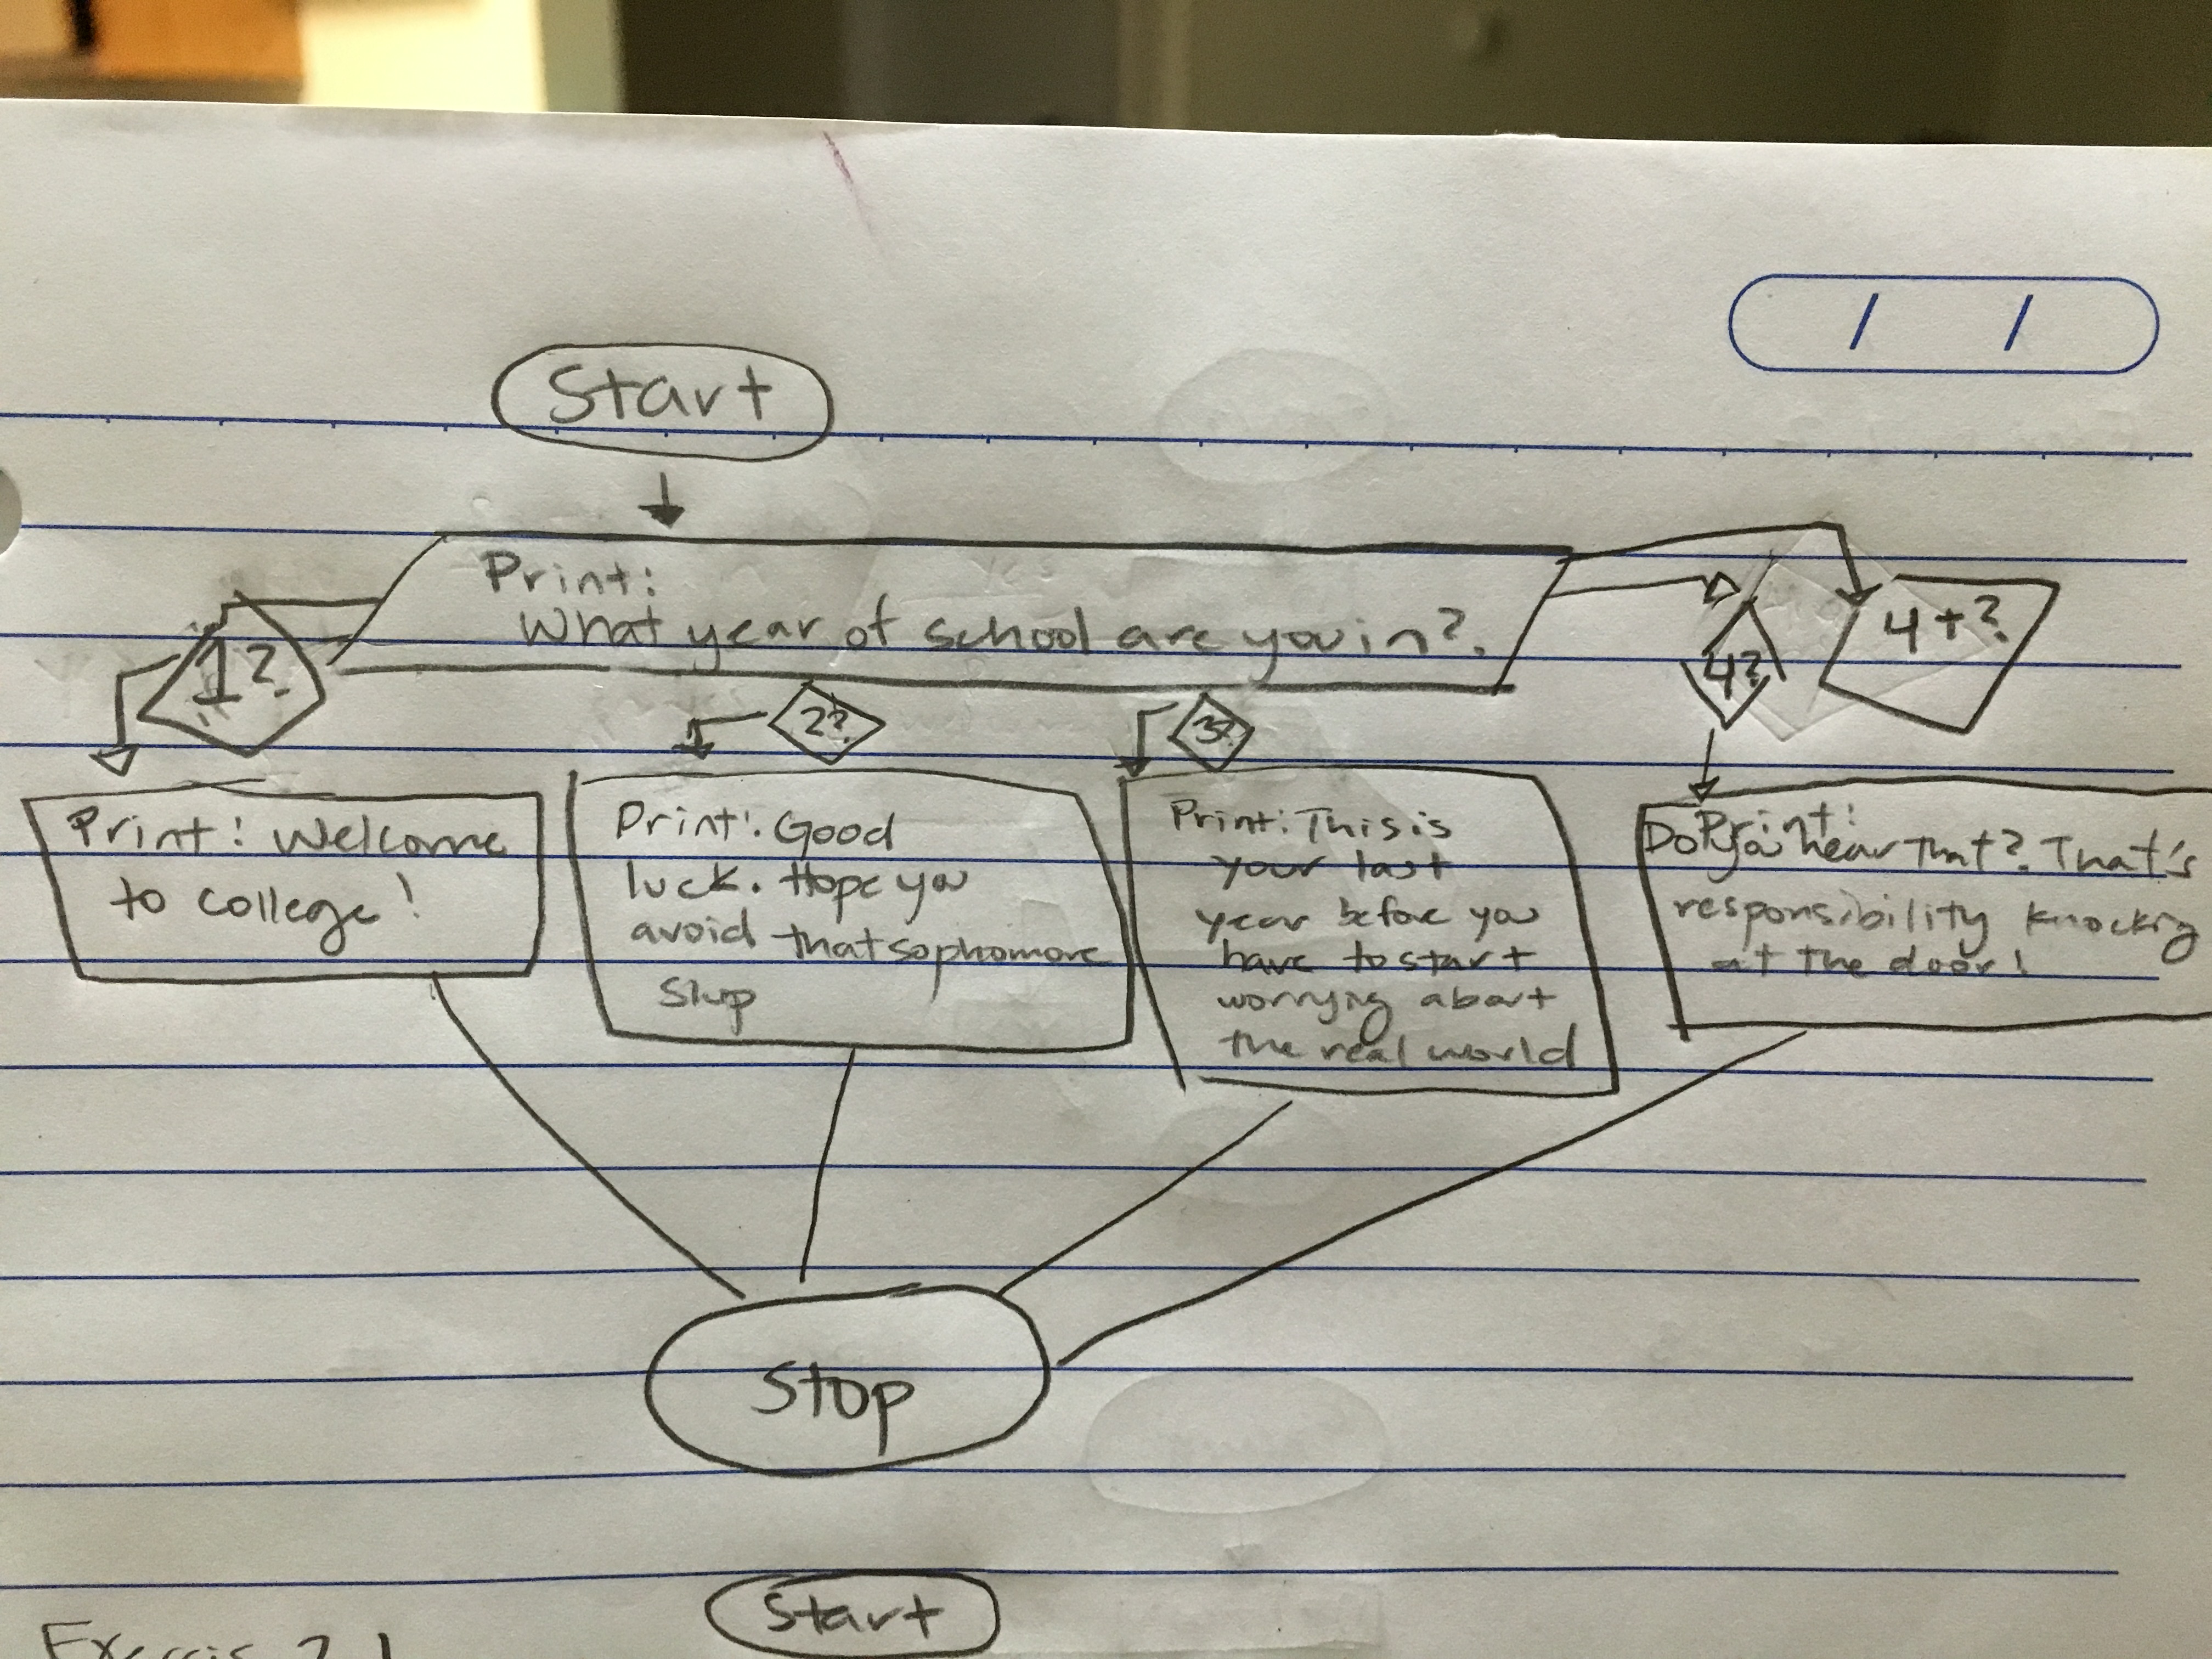 / /
Start
Print:
What year of school are you in?.
1?
2?
3?
4?
4+?
Print: Welcome
to college!
Print: Good
luck. Hope you
avoid that sophomore
Slup
Print: This is
your last
year before you
have to start
worrying about
the real world
Print:
Do You hear That? That's
responsibility knocking
at the door!
Stop
Start